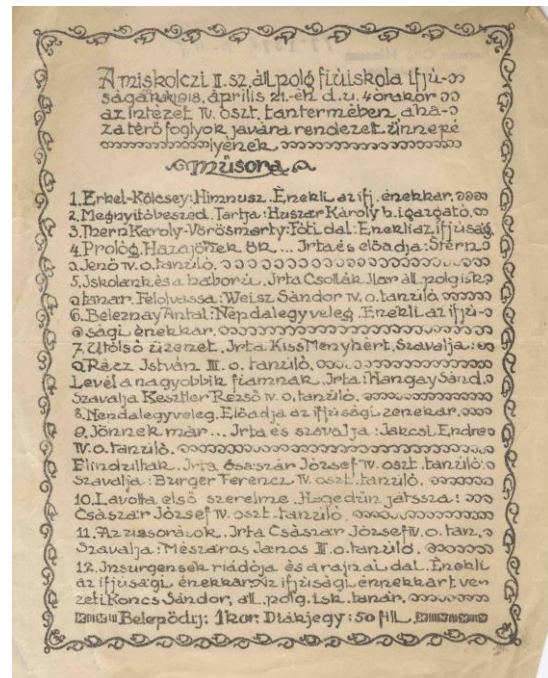 A miskolczi II. sz. áll. polg. fiúiskola ifjú-
ságának 1918. április 21.-én d.u. 4 órakor
az intézet IV. oszt. tantermében, a ha-
za térő foglyok javára rendezet ünnepé
lyének
műsora
1. Erkel-Kölcsey: Himnusz. Énekli az ifj. énekkar.
2. Megnyitóbeszéd. Tartja: Huszár Károly h. igazgató.
3. Thern Karoly-Vörösmarty: Fóti dal: Énekli az ifjúság.
4. Prológ. Hazajönek ők... Irta és előadja: Stern
Jenő IV. o. tanúló.
5. Iskolánk és a háború. Irta Csollák Ilar áll. polg. isk.
tanár. Felolvassa: Weisz Sándor IV. o. tanúló
6. Beleznay Antal: Népdalegyveleg. Énekli az ifjú-
sági énekkar.
7. Utólsó üzenet. Irta Kiss Menyhért. Szavalja:
Rácz István III. o. tanúló.
Levél a nagyobbik fiamnak. Irta: Hangay Sánd.
Szavalja Kesztler Rezső IV. o. tanúló.
8. Nendalegyveleg. Előadja az ifjúsági zenekar.
9. Jönnek már... Irta és szavalja: Jakcsi Endre
IV. o. tanúló.
Elindultak. Irta Császár József IV. oszt. tanúló:
Szavalja: Burger Ferencz IV. oszt. tanúló.
10. Lavotta első szerelme. Hegedün játssza:
Császár József IV. oszt. tanúló.
11. Az Irta Császár József IV. o. tan.
Szavalja: Mészáros János III. o. tanúló.
12. Insurgensek riadója és a rajnai dal. Énekli
az ifjúsági énekkar. Az ifjúsági énnekkart ve-
zeti Koncs Sándor, áll. polg. isk. tanár.
Belepődíj: 1 kor. Diákjegy: 50 fill.